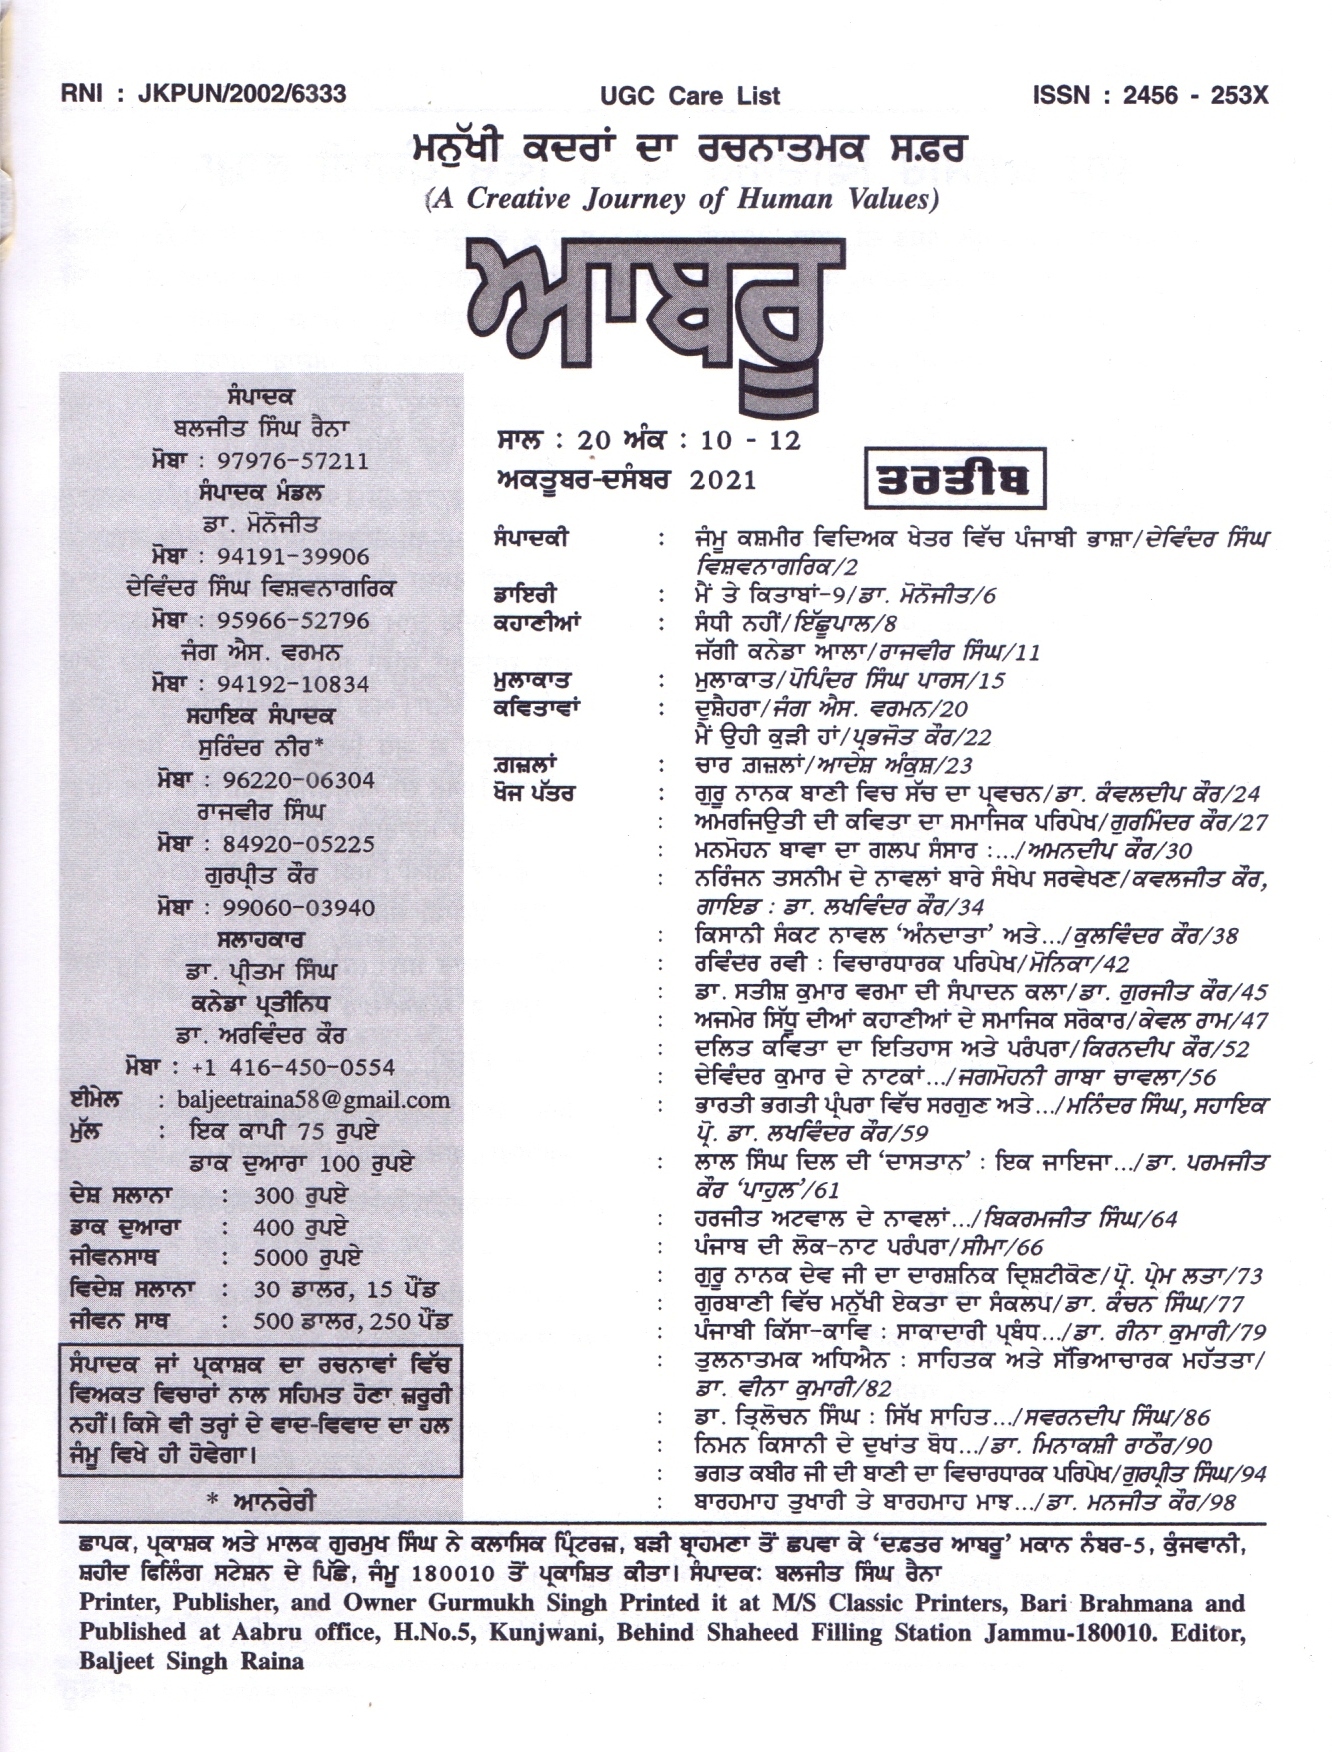 RNI : JKPUN/2002/6333 UGC Care List ISSN : 2456 - 253X
ਮਨੁੱਖੀ ਕਦਰਾਂ ਦਾ ਰਚਨਾਤਮਕ ਸਫ਼ਰ
(A Creative Journey of Human Values)
ਆਬਰੂ
ਸੰਪਾਦਕ
ਬਲਜੀਤ ਸਿੰਘ ਰੈਨਾ
ਮੋਬਾ : 97976-57211
ਸੰਪਾਦਕ ਮੰਡਲ
ਡਾ. ਮੋਨੋਜੀਤ
ਮੋਬਾ : 94191-39906
ਦੇਵਿੰਦਰ ਸਿੰਘ ਵਿਸ਼ਵਨਾਗਰਿਕ
ਮੋਬਾ : 95966-52796
ਜੰਗ ਐਸ. ਵਰਮਨ
ਮੋਬਾ : 94192-10834
ਸਹਾਇਕ ਸੰਪਾਦਕ
ਸੁਰਿੰਦਰ ਨੀਰ*
ਮੋਬਾ : 96220-06304
ਰਾਜਵੀਰ ਸਿੰਘ
ਮੋਬਾ : 84920-05225
ਗੁਰਪ੍ਰੀਤ ਕੌਰ
ਮੋਬਾ : 99060-03940
ਸਲਾਹਕਾਰ
ਡਾ. ਪ੍ਰੀਤਮ ਸਿੰਘ
ਕਨੇਡਾ ਪ੍ਰਤੀਨਿਧ
ਡਾ. ਅਰਵਿੰਦਰ ਕੌਰ
ਮੋਬਾ : +1 416-450-0554
ਈਮੇਲ : baljeetraina58@gmail.com
ਮੁੱਲ : ਇਕ ਕਾਪੀ 75 ਰੁਪਏ
ਡਾਕ ਦੁਆਰਾ 100 ਰੁਪਏ
ਦੇਸ਼ ਸਲਾਨਾ : 300 ਰੁਪਏ
ਡਾਕ ਦੁਆਰਾ : 400 ਰੁਪਏ
ਜੀਵਨਸਾਥ : 5000 ਰੁਪਏ
ਵਿਦੇਸ਼ ਸਲਾਨਾ : 30 ਡਾਲਰ, 15 ਪੌਂਡ
ਜੀਵਨ ਸਾਥ : 500 ਡਾਲਰ, 250 ਪੌਂਡ
ਸੰਪਾਦਕ ਜਾਂ ਪ੍ਰਕਾਸ਼ਕ ਦਾ ਰਚਨਾਵਾਂ ਵਿੱਚ
ਵਿਅਕਤ ਵਿਚਾਰਾਂ ਨਾਲ ਸਹਿਮਤ ਹੋਣਾ ਜ਼ਰੂਰੀ
ਨਹੀਂ। ਕਿਸੇ ਵੀ ਤਰ੍ਹਾਂ ਦੇ ਵਾਦ-ਵਿਵਾਦ ਦਾ ਹਲ
ਜੰਮੂ ਵਿਖੇ ਹੀ ਹੋਵੇਗਾ।
* ਆਨਰੇਰੀ
ਸਾਲ : 20 ਅੰਕ : 10 - 12
ਅਕਤੂਬਰ-ਦਸੰਬਰ 2021
ਤਰਤੀਬ
ਸੰਪਾਦਕੀ : ਜੰਮੂ ਕਸ਼ਮੀਰ ਵਿਦਿਅਕ ਖੇਤਰ ਵਿੱਚ ਪੰਜਾਬੀ ਭਾਸ਼ਾ/ਦੇਵਿੰਦਰ ਸਿੰਘ
ਵਿਸ਼ਵਨਾਗਰਿਕ/2
ਡਾਇਰੀ : ਮੈਂ ਤੇ ਕਿਤਾਬਾਂ-9/ਡਾ. ਮੋਨੋਜੀਤ/6
ਕਹਾਣੀਆਂ : ਸੰਧੀ ਨਹੀਂ/ਇੱਛੂਪਾਲ/8
ਜੱਗੀ ਕਨੇਡਾ ਆਲਾ/ਰਾਜਵੀਰ ਸਿੰਘ/11
ਮੁਲਾਕਾਤ : ਮੁਲਾਕਾਤ/ਪੋਪਿੰਦਰ ਸਿੰਘ ਪਾਰਸ/15
ਕਵਿਤਾਵਾਂ : ਦੁਸ਼ੈਹਰਾ/ਜੰਗ ਐਸ. ਵਰਮਨ/20
ਮੈਂ ਉਹੀ ਕੁੜੀ ਹਾਂ/ਪ੍ਰਭਜੋਤ ਕੌਰ/22
ਗ਼ਜ਼ਲਾਂ : ਚਾਰ ਗ਼ਜ਼ਲਾਂ/ਆਦੇਸ਼ ਅੰਕੁਸ਼/23
ਖੋਜ ਪੱਤਰ : ਗੁਰੂ ਨਾਨਕ ਬਾਣੀ ਵਿਚ ਸੱਚ ਦਾ ਪ੍ਰਵਚਨ/ਡਾ. ਕੰਵਲਦੀਪ ਕੌਰ/24
: ਅਮਰਜਿਉਤੀ ਦੀ ਕਵਿਤਾ ਦਾ ਸਮਾਜਿਕ ਪਰਿਪੇਖ/ਗੁਰਮਿੰਦਰ ਕੌਰ/27
: ਮਨਮੋਹਨ ਬਾਵਾ ਦਾ ਗਲਪ ਸੰਸਾਰ :.../ਅਮਨਦੀਪ ਕੌਰ/30
: ਨਰਿੰਜਨ ਤਸਨੀਮ ਦੇ ਨਾਵਲਾਂ ਬਾਰੇ ਸੰਖੇਪ ਸਰਵੇਖਣ/ਕਵਲਜੀਤ ਕੌਰ,
ਗਾਇਡ : ਡਾ. ਲਖਵਿੰਦਰ ਕੌਰ/34
: ਕਿਸਾਨੀ ਸੰਕਟ ਨਾਵਲ ‘ਅੰਨਦਾਤਾ’ ਅਤੇ.../ਕੁਲਵਿੰਦਰ ਕੌਰ/38
: ਰਵਿੰਦਰ ਰਵੀ : ਵਿਚਾਰਧਾਰਕ ਪਰਿਪੇਖ/ਮੋਨਿਕਾ/42
: ਡਾ. ਸਤੀਸ਼ ਕੁਮਾਰ ਵਰਮਾ ਦੀ ਸੰਪਾਦਨ ਕਲਾ/ਡਾ. ਗੁਰਜੀਤ ਕੌਰ/45
: ਅਜਮੇਰ ਸਿੱਧੂ ਦੀਆਂ ਕਹਾਣੀਆਂ ਦੇ ਸਮਾਜਿਕ ਸਰੋਕਾਰ/ਕੇਵਲ ਰਾਮ/47
: ਦਲਿਤ ਕਵਿਤਾ ਦਾ ਇਤਿਹਾਸ ਅਤੇ ਪਰੰਪਰਾ/ਕਿਰਨਦੀਪ ਕੌਰ/52
: ਦੇਵਿੰਦਰ ਕੁਮਾਰ ਦੇ ਨਾਟਕਾਂ.../ਜਗਮੋਹਨੀ ਗਾਬਾ ਚਾਵਲਾ/56
: ਭਾਰਤੀ ਭਗਤੀ ਪ੍ਰੰਪਰਾ ਵਿੱਚ ਸਰਗੁਣ ਅਤੇ.../ਮਨਿੰਦਰ ਸਿੰਘ, ਸਹਾਇਕ
ਪ੍ਰੋ. ਡਾ. ਲਖਵਿੰਦਰ ਕੌਰ/59
: ਲਾਲ ਸਿੰਘ ਦਿਲ ਦੀ ‘ਦਾਸਤਾਨ’ : ਇਕ ਜਾਇਜਾ.../ਡਾ. ਪਰਮਜੀਤ
ਕੌਰ ‘ਪਾਹੁਲ’/61
: ਹਰਜੀਤ ਅਟਵਾਲ ਦੇ ਨਾਵਲਾਂ.../ਬਿਕਰਮਜੀਤ ਸਿੰਘ/64
: ਪੰਜਾਬ ਦੀ ਲੋਕ-ਨਾਟ ਪਰੰਪਰਾ/ਸੀਮਾ/66
: ਗੁਰੂ ਨਾਨਕ ਦੇਵ ਜੀ ਦਾ ਦਾਰਸ਼ਨਿਕ ਦ੍ਰਿਸ਼ਟੀਕੋਣ/ਪ੍ਰੋ. ਪ੍ਰੇਮ ਲਤਾ/73
: ਗੁਰਬਾਣੀ ਵਿੱਚ ਮਨੁੱਖੀ ਏਕਤਾ ਦਾ ਸੰਕਲਪ/ਡਾ. ਕੰਚਨ ਸਿੰਘ/77
: ਪੰਜਾਬੀ ਕਿੱਸਾ-ਕਾਵਿ : ਸਾਕਾਦਾਰੀ ਪ੍ਰਬੰਧ.../ਡਾ. ਰੀਨਾ ਕੁਮਾਰੀ/79
: ਤੁਲਨਾਤਮਕ ਅਧਿਐਨ : ਸਾਹਿਤਕ ਅਤੇ ਸੱਭਿਆਚਾਰਕ ਮਹੱਤਤਾ/
ਡਾ. ਵੀਨਾ ਕੁਮਾਰੀ/82
: ਡਾ. ਤ੍ਰਿਲੋਚਨ ਸਿੰਘ : ਸਿੱਖ ਸਾਹਿਤ.../ਸਵਰਨਦੀਪ ਸਿੰਘ/86
: ਨਿਮਨ ਕਿਸਾਨੀ ਦੇ ਦੁਖਾਂਤ ਬੋਧ.../ਡਾ. ਮਿਨਾਕਸ਼ੀ ਰਾਠੌਰ/90
: ਭਗਤ ਕਬੀਰ ਜੀ ਦੀ ਬਾਣੀ ਦਾ ਵਿਚਾਰਧਾਰਕ ਪਰਿਪੇਖ/ਗੁਰਪ੍ਰੀਤ ਸਿੰਘ/94
: ਬਾਰਹਮਾਹ ਤੁਖਾਰੀ ਤੇ ਬਾਰਹਮਾਹ ਮਾਝ.../ਡਾ. ਮਨਜੀਤ ਕੌਰ/98
ਛਾਪਕ, ਪ੍ਰਕਾਸ਼ਕ ਅਤੇ ਮਾਲਕ ਗੁਰਮੁਖ ਸਿੰਘ ਨੇ ਕਲਾਸਿਕ ਪ੍ਰਿੰਟਰਜ਼, ਬੜੀ ਬ੍ਰਾਹਮਣਾ ਤੋਂ ਛਪਵਾ ਕੇ ‘ਦਫ਼ਤਰ ਆਬਰੂ’ ਮਕਾਨ ਨੰਬਰ-5, ਕੁੰਜਵਾਨੀ,
ਸ਼ਹੀਦ ਫਿਲਿੰਗ ਸਟੇਸ਼ਨ ਦੇ ਪਿੱਛੇ, ਜੰਮੂ 180010 ਤੋਂ ਪ੍ਰਕਾਸ਼ਿਤ ਕੀਤਾ। ਸੰਪਾਦਕ: ਬਲਜੀਤ ਸਿੰਘ ਰੈਨਾ
Printer, Publisher, and Owner Gurmukh Singh Printed it at M/S Classic Printers, Bari Brahmana and
Published at Aabru office, H.No.5, Kunjwani, Behind Shaheed Filling Station Jammu-180010. Editor,
Baljeet Singh Raina